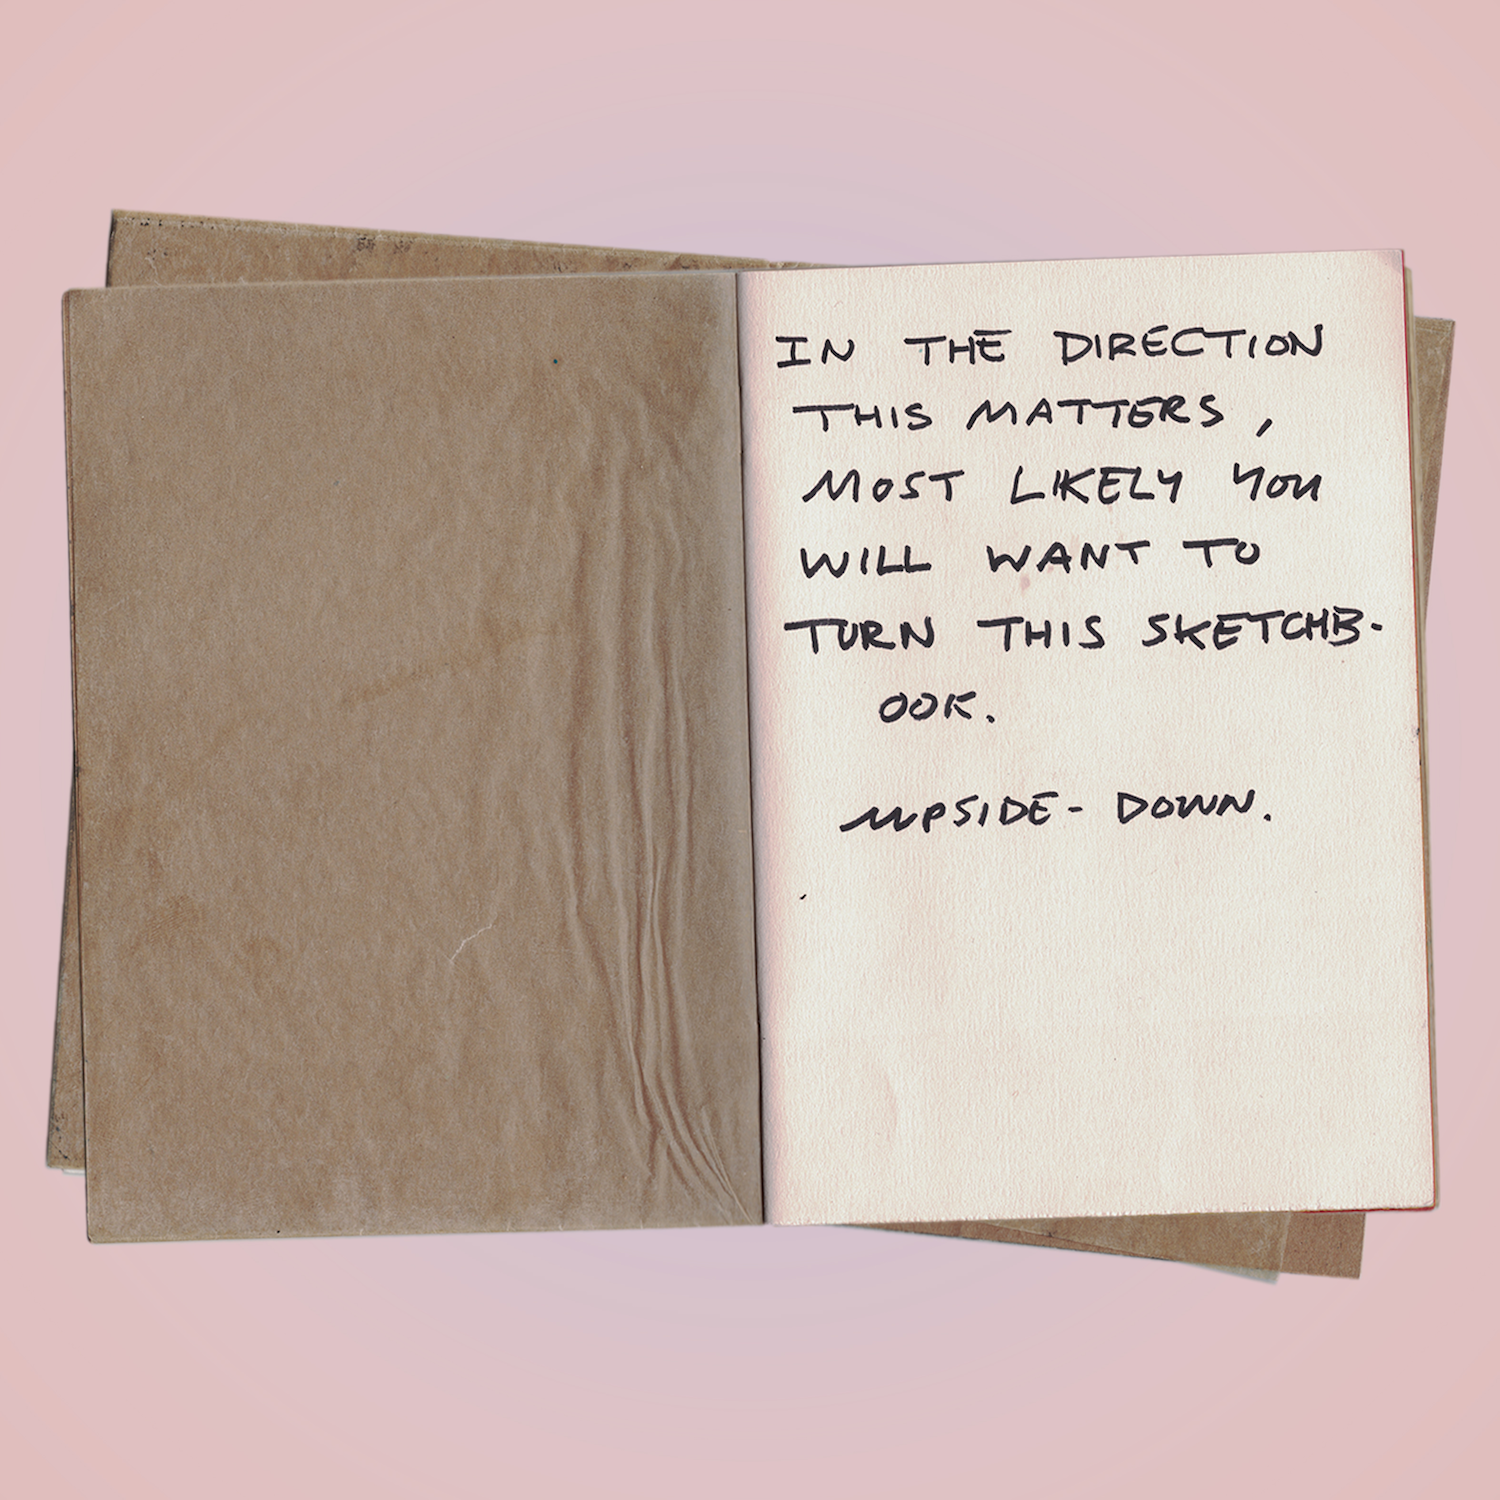 IN THE DIRECTION
THIS MATTERS,
MOST LIKELY YOU
WILL WANT TO
TURN THIS SKETCHB-
OOK.
UPSIDE-DOWN.